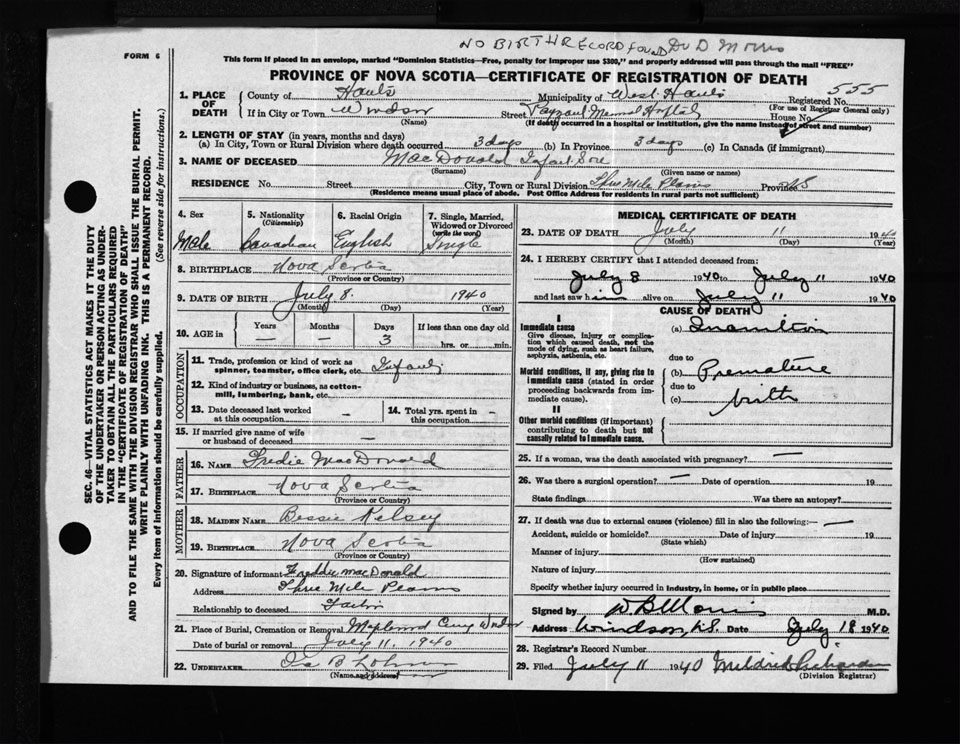 NO BIRTH RECORD FOUND Dr D Morris
FORM 6
This form if placed in an envelope, marked "Dominion Statistics—Free, penalty for improper use $300," and properly addressed will pass through the mail "FREE"
PROVINCE OF NOVA SCOTIA—CERTIFICATE OF REGISTRATION OF DEATH
1. PLACE OF DEATH
County of Hants Municipality of West Hants Registered No. 555
(For use of Registrar General only)
If in City or Town Windsor Street Payzant Memorial Hospital House No.
(Name) (If death occurred in a hospital or institution, give the name instead of street and number)
2. LENGTH OF STAY (in years, months and days)
(a) In City, Town or Rural Division where death occurred 3 days (b) In Province 3 days (c) In Canada (if immigrant)
3. NAME OF DECEASED MacDonald Infant Son
(Surname) (Given name or names)
RESIDENCE No. Street City, Town or Rural Division Three Mile Plains Province NS
(Residence means usual place of abode. Post Office Address for residents in rural parts not sufficient)
4. Sex 5. Nationality (Citizenship) 6. Racial Origin 7. Single, Married, Widowed or Divorced (write the word)
Male Canadian English Single
8. BIRTHPLACE Nova Scotia
(Province or Country)
9. DATE OF BIRTH July 8. 1940
(Month) (Day) (Year)
10. AGE in Years Months Days If less than one day old
— — 3 hrs. or min.
OCCUPATION
11. Trade, profession or kind of work as spinner, teamster, office clerk, etc. Infant
12. Kind of industry or business, as cotton-mill, lumbering, bank, etc.
13. Date deceased last worked at this occupation — 14. Total yrs. spent in this occupation —
15. If married give name of wife or husband of deceased —
FATHER
16. NAME Fredie MacDonald
17. BIRTHPLACE Nova Scotia
(Province or Country)
MOTHER
18. MAIDEN NAME Bessie Kelsey
19. BIRTHPLACE Nova Scotia
(Province or Country)
20. Signature of informant Freddie MacDonald
Address Three Mile Plains
Relationship to deceased Father
21. Place of Burial, Cremation or Removal Maplewood Cemy Windsor
Date of burial or removal July 11, 1940
22. UNDERTAKER
(Name and address)
MEDICAL CERTIFICATE OF DEATH
23. DATE OF DEATH July 11 1940
(Month) (Day) (Year)
24. I HEREBY CERTIFY that I attended deceased from:
July 8 1940 to July 11 1940
and last saw him alive on July 11 1940
CAUSE OF DEATH
I
Immediate cause (a) Inanition
Give disease, injury or complication which caused death, not the mode of dying, such as heart failure, asphyxia, asthenia, etc.
due to
Morbid conditions, if any, giving rise to immediate cause (stated in order proceeding backwards from immediate cause).
(b) Premature
due to
(c) birth
II
Other morbid conditions (if important) contributing to death but not causally related to immediate cause.
25. If a woman, was the death associated with pregnancy? —
26. Was there a surgical operation? — Date of operation 19
State findings Was there an autopsy?
27. If death was due to external causes (violence) fill in also the following:— —
Accident, suicide or homicide? Date of injury 19
(State which)
Manner of injury
(How sustained)
Nature of injury
Specify whether injury occurred in industry, in home, or in public place
Signed by W B Morris M.D.
Address Windsor, N.S. Date July 18 1940
28. Registrar's Record Number
29. Filed July 11 1940 Mildred Richardson
(Division Registrar)
SEC. 46—VITAL STATISTICS ACT MAKES IT THE DUTY
OF THE UNDERTAKER OR PERSON ACTING AS UNDER-
TAKER TO OBTAIN ALL THE PARTICULARS REQUIRED
IN THE "CERTIFICATE OF REGISTRATION OF DEATH"
AND TO FILE THE SAME WITH THE DIVISION REGISTRAR WHO SHALL ISSUE THE BURIAL PERMIT.
WRITE PLAINLY WITH UNFADING INK. THIS IS A PERMANENT RECORD.
Every item of information should be carefully supplied. (See reverse side for instructions.)